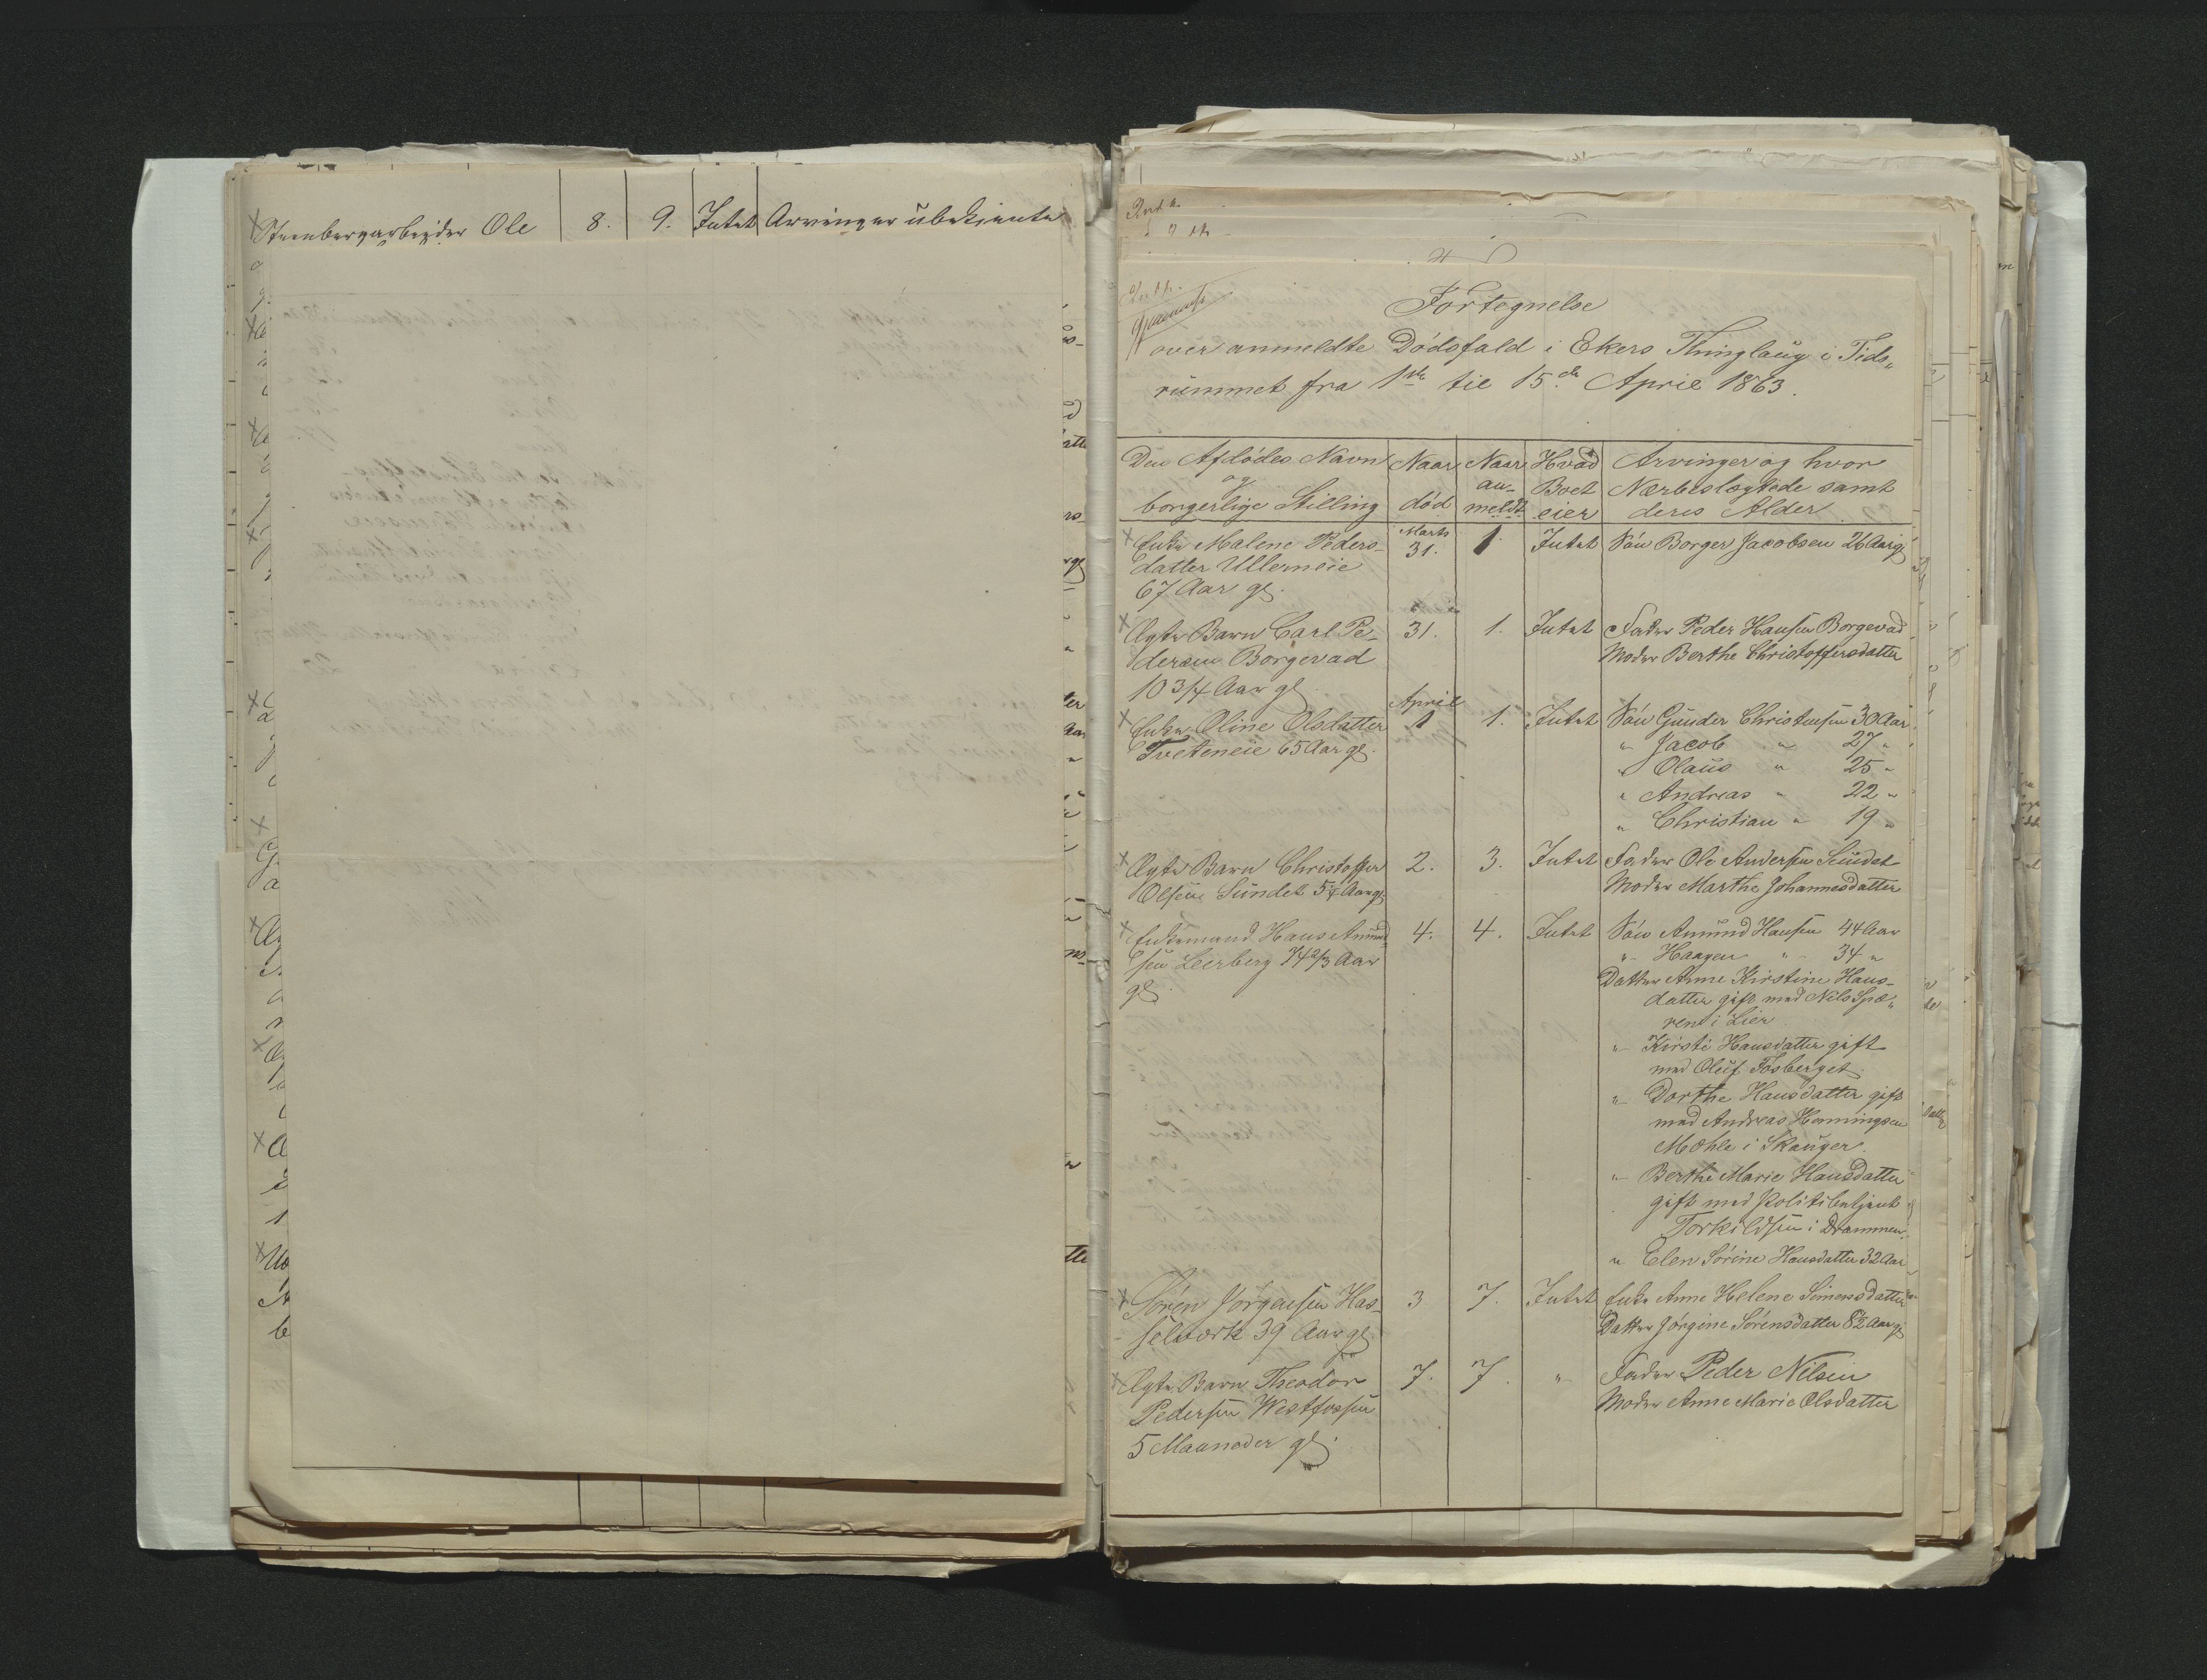 Steenbergarbeider Ole 8. 9. Intet Arvinger ubekjente
Fortegnelse
over anmeldte Dödsfald i Ekers Thinglaug i Tids„
rummet fra 1ste til 15de April 1863.
Den Afdödes Navn
og
borgerlige Stilling
Naar
död
Naar
an-
meldt
Hvad
Boet
eier
Arvinger og hvor
Nærbeslægtede samt
deres Alder
Marts
Enke Malene Peders- 31. 1. Intet Sön Borger Jacobsen 26 Aar gl
datter Ullerneie
67 Aar gl.
Ægte Barn Carl Pe- 31. 1. Intet Fader Peder Hansen Borgevad
dersen Borgevad Moder Berthe Christoffersdatter
10 3/4 Aar gl
April
Enke Oline Olsdatter 1 1. Intet Sön Gunder Christensen 30 Aar
Tveteneie 65 Aar gl. " Jacob " 27 "
" Olaus " 25 "
" Andreas " 22 "
" Christian " 19 "
Ægte Barn Christoffer 2. 3. Intet Fader Ole Andersen Sundet
Olsen Sundet 5 1/4 Aar gl Moder Marthe Johannesdatter
Enkemand Hans Amund 4. 4. Intet Sön Amund Hansen 44 Aar
sen Leerberg 74 2/3 Aar " Haagen " 34 "
gl. Datter Anne Kirstine Hans-
datter gift med Nils Spæ„
ren i Lier
" Kirsti Hansdatter gift
med Oluf Fosberget
" Dorthe Hansdatter gift
med Andreas Hemmingsen
Mæhle i Skauger.
" Berthe Marie Hansdatter
gift med Politibetjent
Torkildsen i Drammen.
" Elen Sörine Hansdatter 32 Aar
Sören Jörgensen Has- 3 7. Intet Enke Anne Helene Simensdatter
selværk 39 Aar gl Datter Jörgine Sörensdatter 8 1/2 Aar gl
Ægte Barn Theodor 7. 7. " Fader Peder Nilsen
Pedersen Westfossen Moder Anne Marie Olsdatter
5 Maaneder gl.